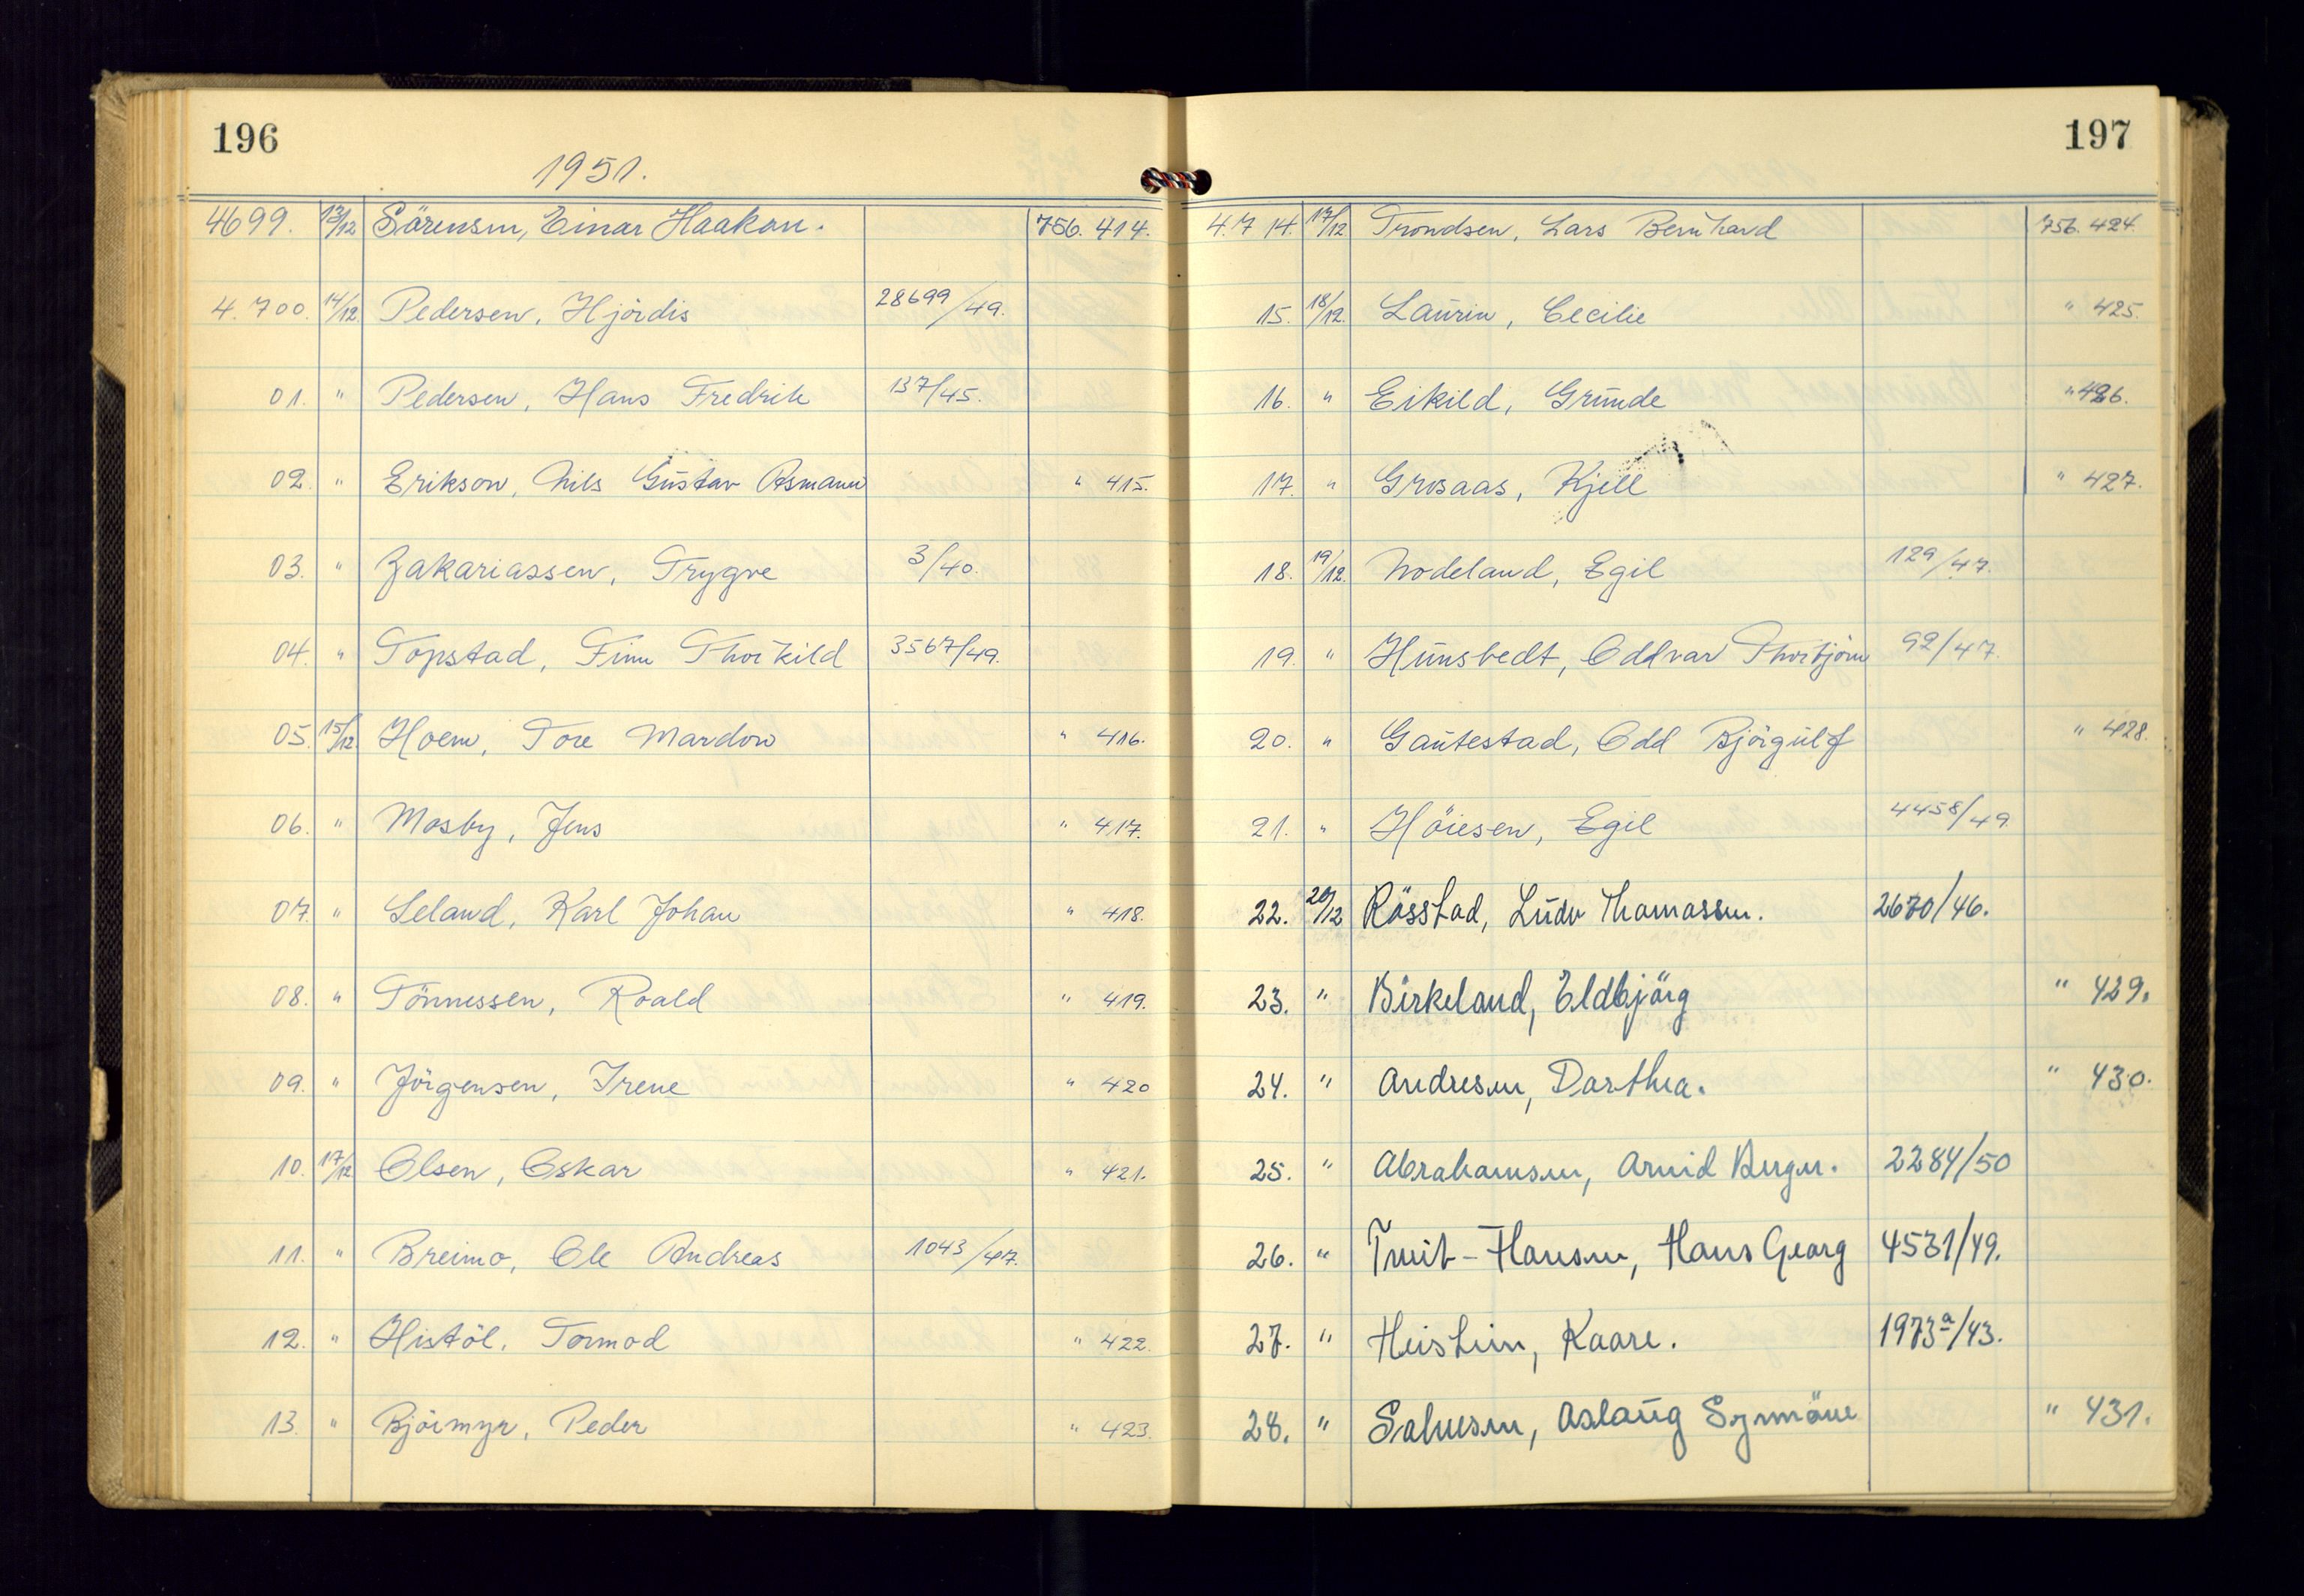 196
1951.
4699. 13/12 Sörensen, Einar Haakon. 756. 414.
4.700. 14/12 Pedersen, Hjördis 28699/49.
01. " Pedersen, Hans Fredrik 137/45.
02. " Erikson, Nils Gustav Asmann " 415.
03. " Zakariassen, Trygve 3/40.
04. " Topstad, Finn Thorkild 3567/49.
05. 15/12 Hoem, Tore Mardow " 416.
06. " Mosby, Jens " 417.
07. " Leland, Karl Johan " 418.
08. " Tönnessen, Roald " 419.
09. " Jörgensen, Irene " 420
10. 17/12 Olsen, Oskar " 421.
11. " Breimo, Ole Andreas 1043/47.
12. " Histöl, Tormod " 422.
13. " Björmyr, Peder " 423.
197
4.7 14. 17/12 Trondsen, Lars Bernhard 756. 424.
15. 18/12. Laurin, Cecilie " 425.
16. " Eikild, Grunde " 426.
17. " Grosaas, Kjell " 427.
18. 19/12. Nodeland, Egil 129/47.
19. " Hunsbedt, Oddvar Thorbjörn 92/47.
20. " Gautestad, Odd Björgulf " 428.
21. " Höiesen, Egil 4458/49.
22. 20/12 Rösstad, Ludv Thomassen. 2670/46.
23. " Birkeland, Eldbjörg " 429.
24. " Andresen, Dorthea. " 430.
25. " Abrahamsen, Arvid Berger. 2284/50
26. " Tveit-Hansen, Hans Georg 4531/49.
27. " Heistein, Kaare. 1973a/43.
28. " Salvesen, Aslaug Synnöve " 431.